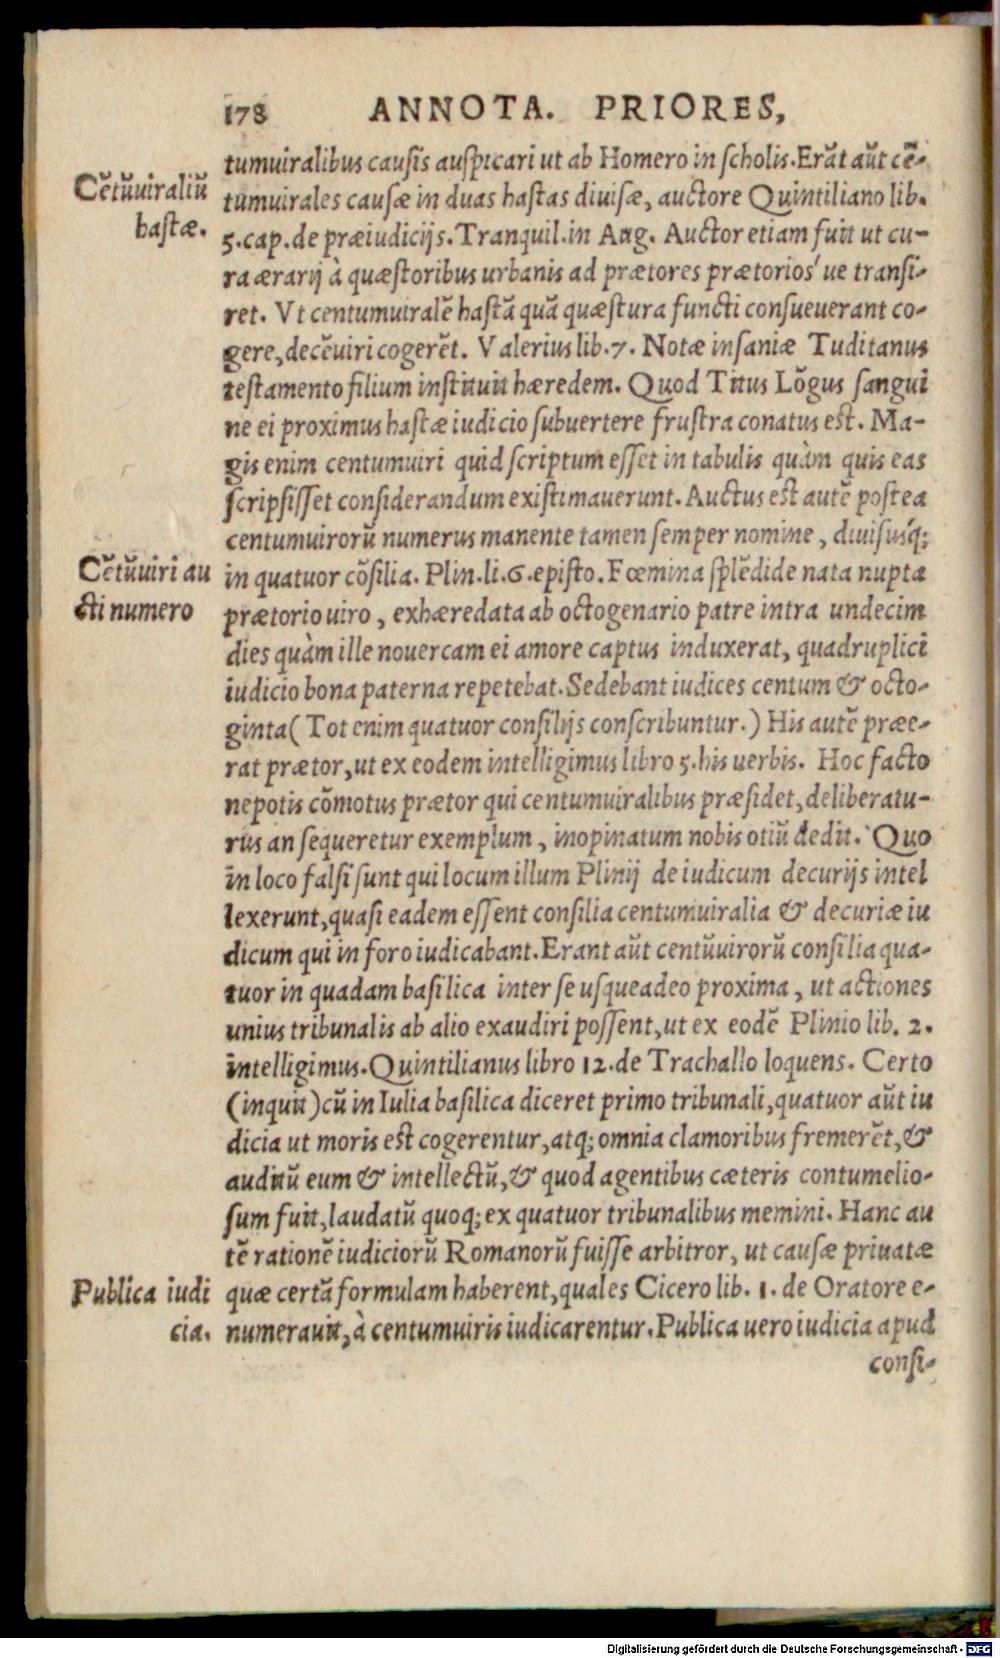 178 ANNOTA. PRIORES,
tumuiralibus causis auspicari ut ab Homero in scholis. Erāt aūt cē-
Cētūuiraliū
hastæ.
tumuirales causæ in duas hastas diuisæ, auctore Quintiliano lib.
5. cap. de præiudicijs. Tranquil. in Aug. Auctor etiam fuit ut cu-
ra ærarij à quæstoribus urbanis ad prætores prætorios'ue transi-
ret. Vt centumuiralē hastā quā quæstura functi consueuerant co-
gere, decēuiri cogerēt. Valerius lib. 7. Notæ insaniæ Tuditanus
testamento filium instituit hæredem. Quod Titus Lōgus sangui
ne ei proximus hastæ iudicio subuertere frustra conatus est. Ma-
gis enim centumuiri quid scriptum esset in tabulis quàm quis eas
scripsisset considerandum existimauerunt. Auctus est autē postea
centumuirorū numerus manente tamen semper nomine, diuisusq́;
Cētūuiri au
cti numero
in quatuor cōsilia. Plin. li. 6. episto. Fœmina splēdide nata nupta
prætorio uiro, exhæredata ab octogenario patre intra undecim
dies quàm ille nouercam ei amore captus induxerat, quadruplici
iudicio bona paterna repetebat. Sedebant iudices centum & octo-
ginta (Tot enim quatuor consilijs conscribuntur.) His autē præe-
rat prætor, ut ex eodem intelligimus libro 5. his uerbis. Hoc facto
nepotis cōmotus prætor qui centumuiralibus præsidet, deliberatu-
rus an sequeretur exemplum, inopinatum nobis otiū dedit. Quo
in loco falsi sunt qui locum illum Plinij de iudicum decurijs intel
lexerunt, quasi eadem essent consilia centumuiralia & decuriæ iu
dicum qui in foro iudicabant. Erant aūt centūuirorū consilia qua-
tuor in quadam basilica inter se usqueadeo proxima, ut actiones
unius tribunalis ab alio exaudiri possent, ut ex eodē Plinio lib. 2.
intelligimus. Quintilianus libro 12. de Trachallo loquens. Certo
(inquit) cū in Iulia basilica diceret primo tribunali, quatuor aūt iu
dicia ut moris est cogerentur, atq; omnia clamoribus fremerēt, &
auditū eum & intellectū, & quod agentibus cæteris contumelio-
sum fuit, laudatū quoq; ex quatuor tribunalibus memini. Hanc au
tē rationē iudiciorū Romanorū fuisse arbitror, ut causæ priuatæ
Publica iudi
cia.
quæ certā formulam haberent, quales Cicero lib. 1. de Oratore e-
numerauit, à centumuiris iudicarentur. Publica uero iudicia apud
consi-
Digitalisierung gefördert durch die Deutsche Forschungsgemeinschaft - DFG